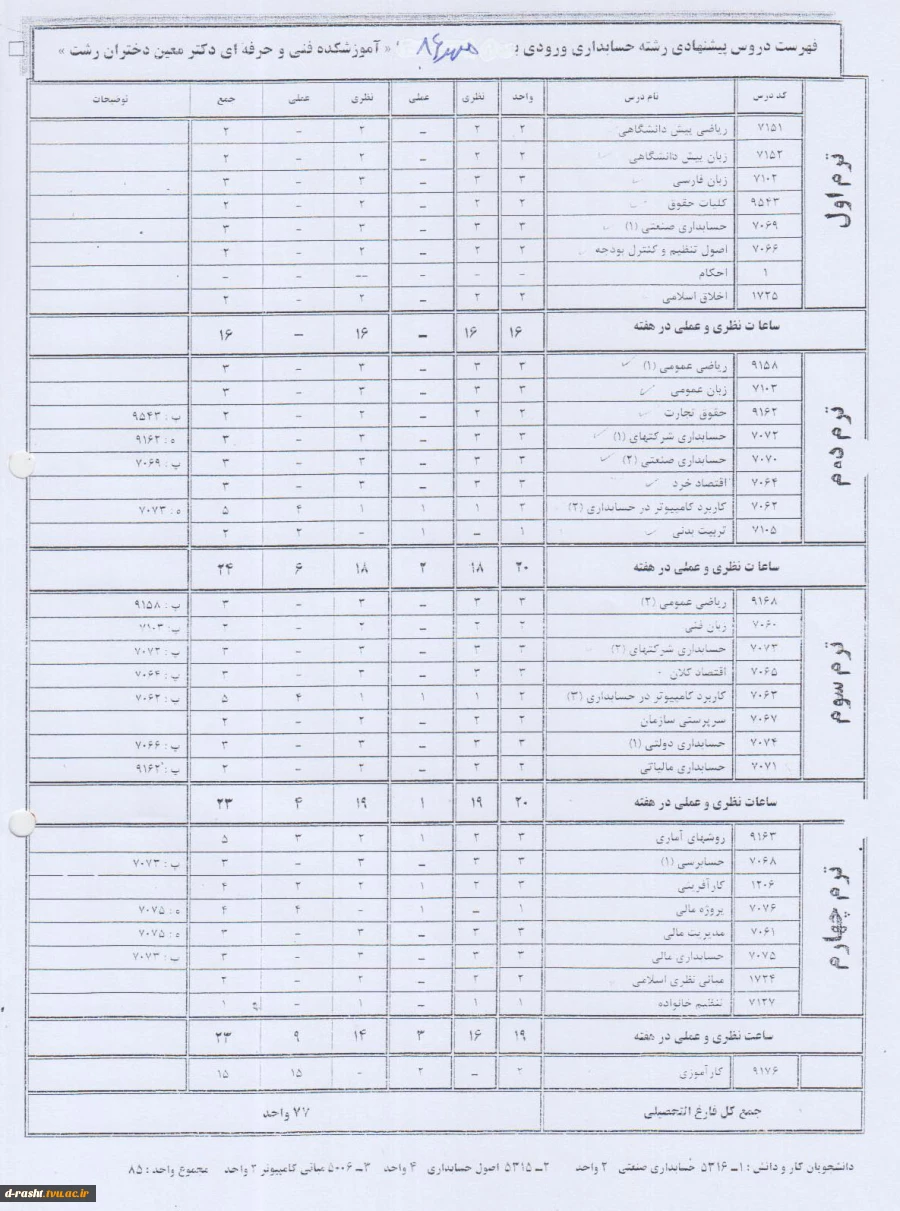 فهرست دروس پیشنهادی رشته حسابداری ورودی ب مهر ۸۶ « آموزشکده فنی و حرفه ای دکتر معین دختران رشت »
کد درس نام درس واحد نظری عملی نظری عملی جمع توضیحات
ترم اول
۷۱۵۱ ریاضی پیش دانشگاهی ۲ ۲ – ۲ – ۲
۷۱۵۲ زبان پیش دانشگاهی ۲ ۲ – ۲ – ۲
۷۱۰۲ زبان فارسی ۳ ۳ – ۳ – ۳
۹۵۴۳ کلیات حقوق ۲ ۲ – ۲ – ۲
۷۰۶۹ حسابداری صنعتی (۱) ۳ ۳ – ۳ – ۳
۷۰۶۶ اصول تنظیم و کنترل بودجه ۲ ۲ – ۲ – ۲
۱ احکام – – – –- – –
۱۷۲۵ اخلاق اسلامی ۲ ۲ – ۲ – ۲
ساعات نظری و عملی در هفته ۱۶ ۱۶ – ۱۶ – ۱۶
ترم دوم
۹۱۵۸ ریاضی عمومی (۱) ۳ ۳ – ۳ – ۳
۷۱۰۳ زبان عمومی ۳ ۳ – ۳ – ۳
۹۱۶۲ حقوق تجارت ۲ ۲ – ۲ – ۲ پ : ۹۵۴۳
۷۰۷۲ حسابداری شرکتهای (۱) ۳ ۳ – ۳ – ۳ ه : ۹۱۶۲
۷۰۷۰ حسابداری صنعتی (۲) ۳ ۳ – ۳ – ۳ پ : ۷۰۶۹
۷۰۶۴ اقتصاد خرد ۳ ۳ – ۳ – ۳
۷۰۶۲ کاربرد کامپیوتر در حسابداری (۲) ۲ ۱ ۱ ۱ ۴ ۵ ه : ۷۰۷۳
۷۱۰۵ تربیت بدنی ۱ – ۱ – ۲ ۲
ساعات نظری و عملی در هفته ۲۰ ۱۸ ۲ ۱۸ ۶ ۲۴
ترم سوم
۹۱۶۸ ریاضی عمومی (۲) ۳ ۳ – ۳ – ۳ پ : ۹۱۵۸
۷۰۶۰ زبان فنی ۲ ۲ – ۲ – ۲ پ : ۷۱۰۳
۷۰۷۳ حسابداری شرکتهای (۲) ۳ ۳ – ۳ – ۳ پ : ۷۰۷۲
۷۰۶۵ اقتصاد کلان ۳ ۳ – ۳ – ۳ پ : ۷۰۶۴
۷۰۶۳ کاربرد کامپیوتر در حسابداری (۳) ۲ ۱ ۱ ۱ ۴ ۵ پ : ۷۰۶۲
۷۰۶۷ سرپرستی سازمان ۲ ۲ – ۲ – ۲
۷۰۷۴ حسابداری دولتی (۱) ۳ ۳ – ۳ – ۳ پ : ۷۰۶۶
۷۰۷۱ حسابداری مالیاتی ۲ ۲ – ۲ – ۲ پ : ۹۱۶۲
ساعات نظری و عملی در هفته ۲۰ ۱۹ ۱ ۱۹ ۴ ۲۳
ترم چهارم
۹۱۶۳ روشهای آماری ۳ ۲ ۱ ۲ ۳ ۵
۷۰۶۸ حسابرسی (۱) ۳ ۳ – ۳ – ۳ پ : ۷۰۷۳
۱۲۰۶ کارآفرینی ۳ ۲ ۱ ۲ ۲ ۴
۷۰۷۶ پروژه مالی ۱ – ۱ – ۴ ۴ ه : ۷۰۷۵
۷۰۶۱ مدیریت مالی ۳ ۳ – ۳ – ۳ ه : ۷۰۷۵
۷۰۷۵ حسابداری مالی ۳ ۳ – ۳ – ۳ پ : ۷۰۷۳
۱۷۲۴ مبانی نظری اسلامی ۲ ۲ – ۲ – ۲
۷۱۲۷ تنظیم خانواده ۱ ۱ – ۱ – ۱
ساعت نظری و عملی در هفته ۱۹ ۱۶ ۳ ۱۴ ۹ ۲۳
۹۱۷۶ کارآموزی ۲ – ۲ - ۱۵ ۱۵
جمع کل فارغ التحصیلی ۷۷ واحد
دانشجویان کار و دانش : ۱ـ ۵۳۱۶ حسابداری صنعتی ۲ واحد ۲ـ ۵۳۱۵ اصول حسابداری ۴ واحد ۳ـ ۵۰۰۶ مبانی کامپیوتر ۲ واحد مجموع واحد : ۸۵
d-rasht.tvu.ac.ir